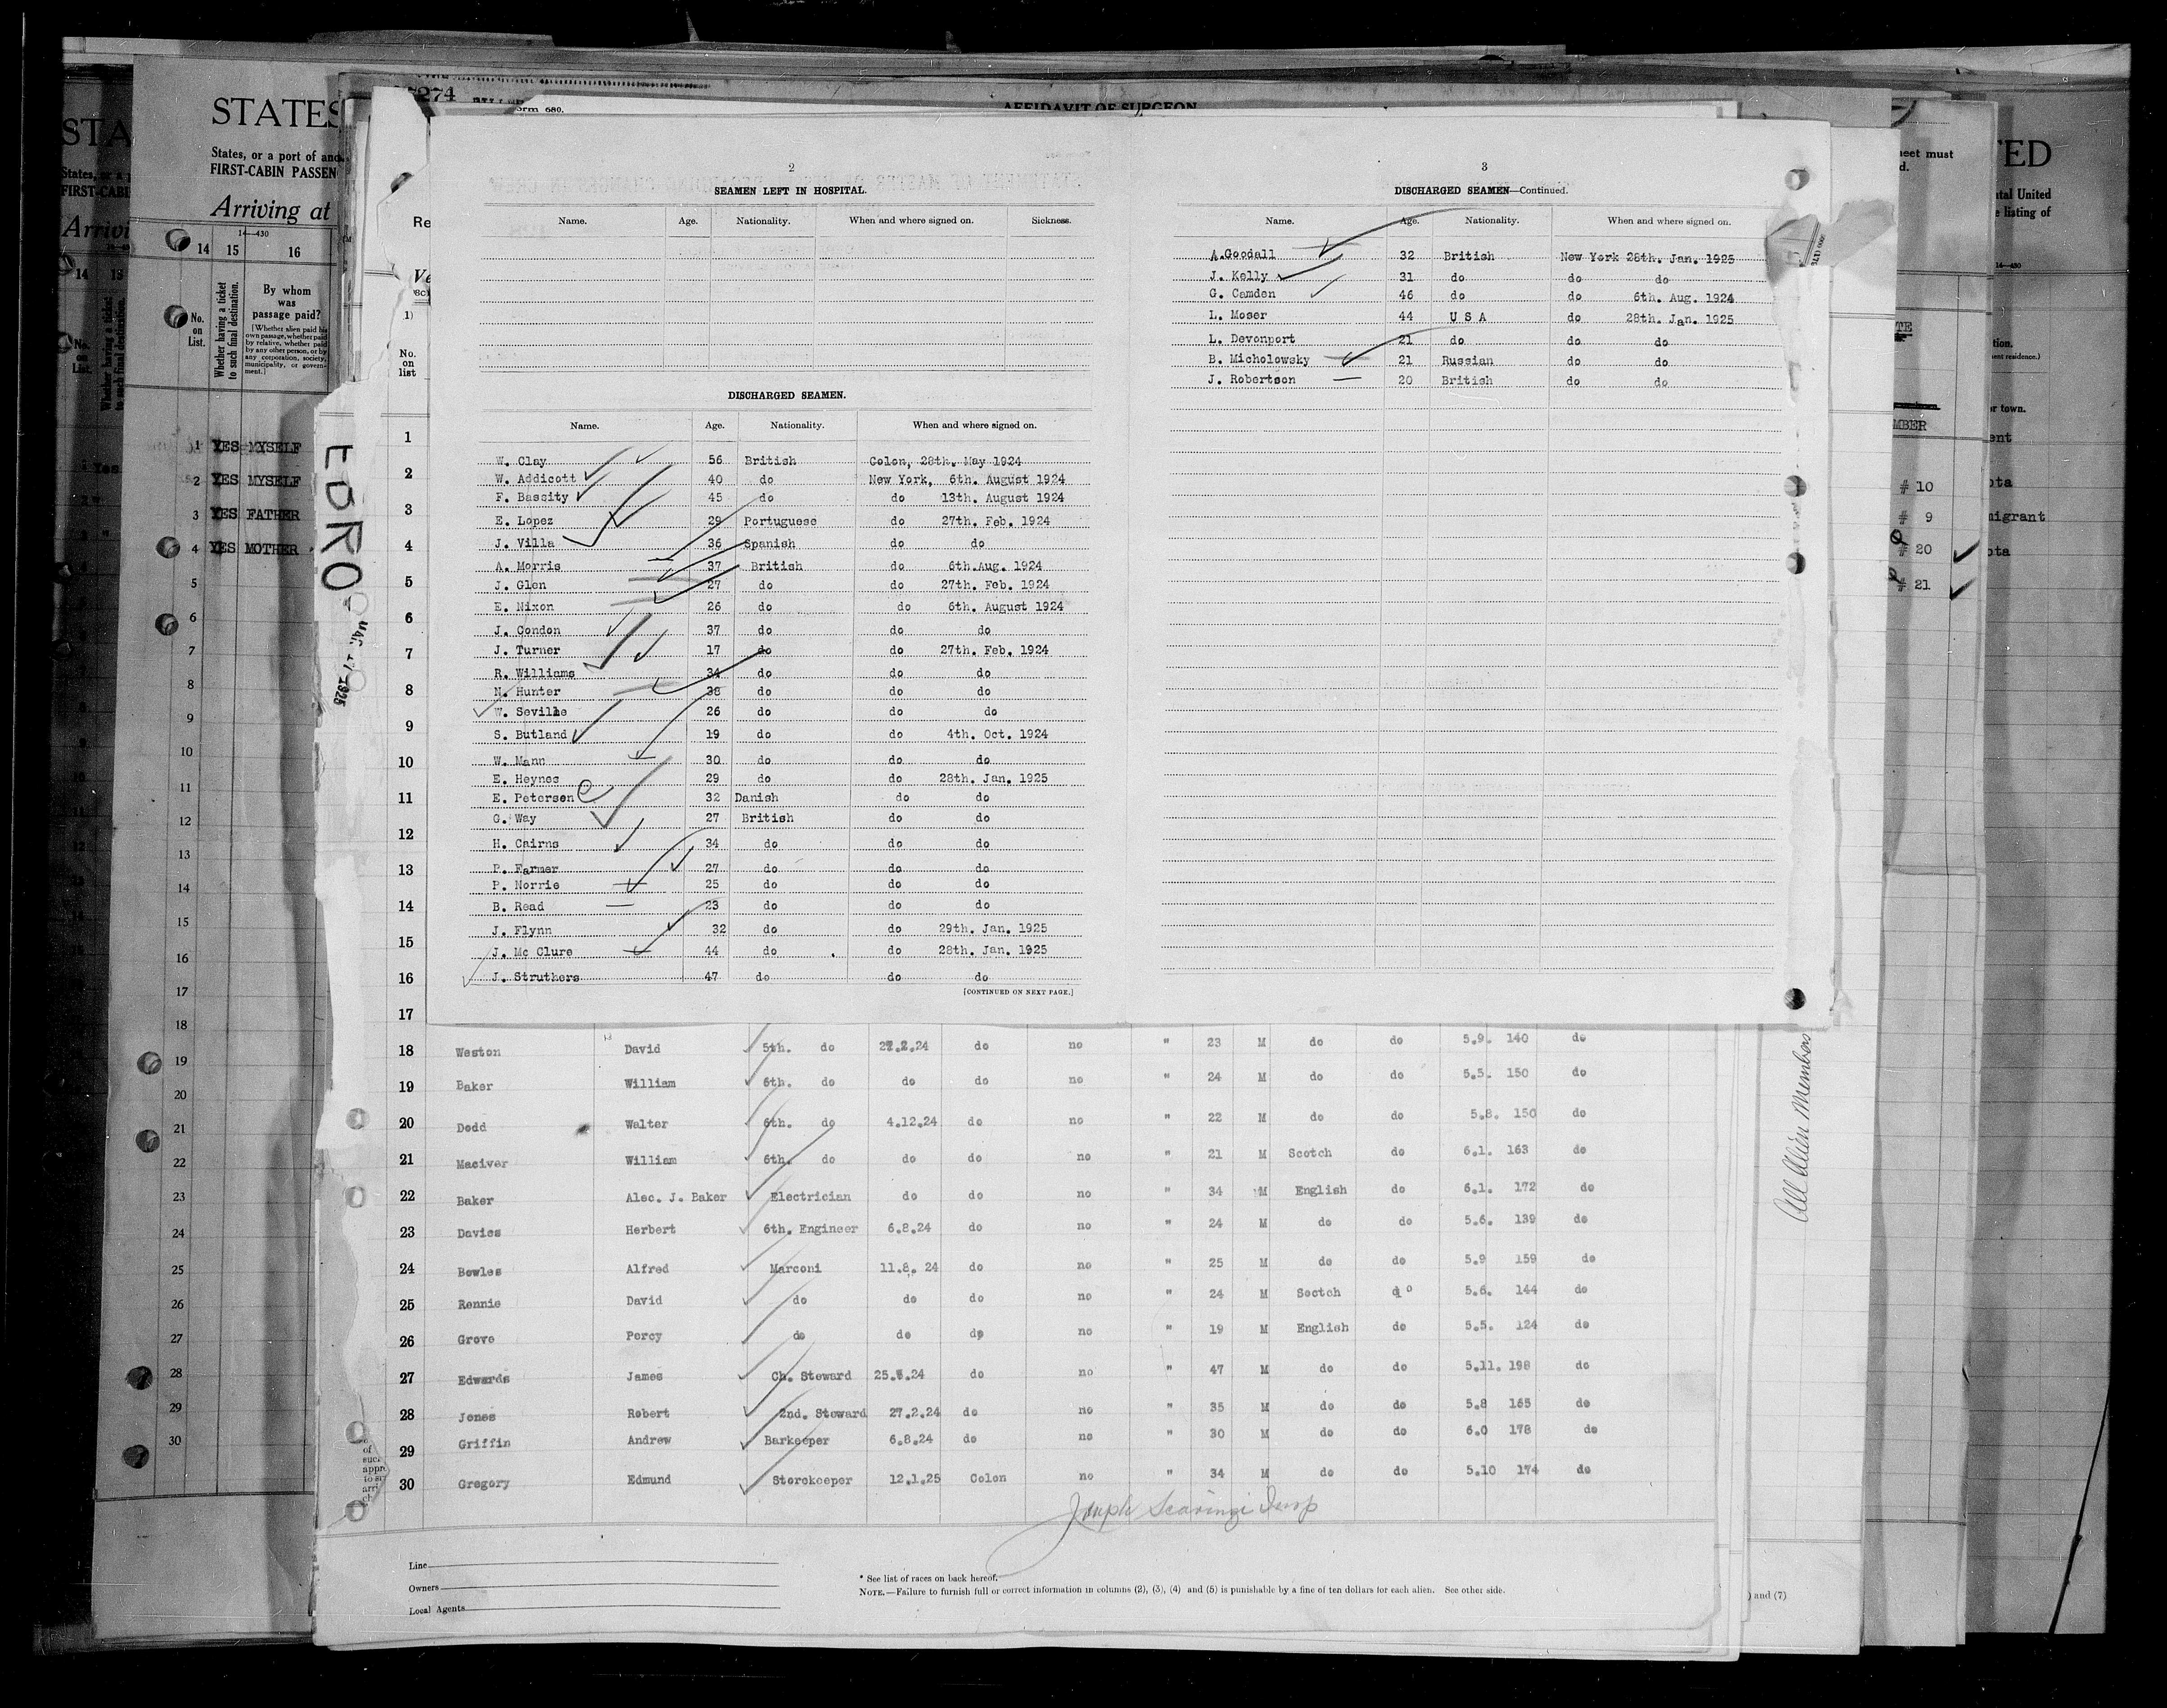 STATES
States, or a port of
FIRST-CABIN PASSEN
Arriving at
14—430
14 15 16
No. on List.
Whether having a ticket to such final destination.
By whom was passage paid?
(Whether alien paid his own passage, whether paid by relative, whether paid by any other person, or by any corporation, society, municipality, or government.)
1 YES MYSELF
2 YES MYSELF
3 YES FATHER
4 YES MOTHER
5
6
7
8
9
10
11
12
13
14
15
16
17
18
19
20
21
22
23
24
25
26
27
28
29
30
274
orm 680.
AFFIDAVIT OF SURGEON
EBRO
1925
2
SEAMEN LEFT IN HOSPITAL.
Name. Age. Nationality. When and where signed on. Sickness.
DISCHARGED SEAMEN.
Name. Age. Nationality. When and where signed on.
W. Clay 56 British Colon, 28th. May 1924
W. Addicott 40 do New York, 6th. August 1924
F. Bassity 45 do do 13th. August 1924
E. Lopez 29 Portuguese do 27th. Feb. 1924
J. Villa 36 Spanish do do
A. Morris 37 British do 6th.Aug. 1924
J. Glen 27 do do 27th. Feb. 1924
E. Nixon 26 do do 6th. August 1924
J. Condon 37 do do do
J. Turner 17 do do 27th. Feb. 1924
R. Williams 34 do do do
N. Hunter 38 do do do
W. Seville 26 do do do
S. Butland 19 do do 4th. Oct. 1924
W. Mann 30 do do do
E. Heynes 29 do do 28th. Jan. 1925
E. Petersen 32 Danish do do
G. Way 27 British do do
H. Cairns 34 do do do
P. Farmer 27 do do do
P. Norrie 25 do do do
B. Read 23 do do do
J. Flynn 32 do do 29th. Jan. 1925
J. Mc Clure 44 do do 28th. Jan. 1925
J. Struthers 47 do do do
[CONTINUED ON NEXT PAGE.]
3
DISCHARGED SEAMEN—Continued.
Name. Age. Nationality. When and where signed on.
A.Goodall 32 British New York 28th. Jan. 1925
J. Kelly 31 do do do
G. Camden 46 do do 6th. Aug. 1924
L. Moser 44 U S A do 28th. Jan. 1925
L. Devonport 21 do do do
B. Micholowsky 21 Russian do do
J. Robertson 20 British do do
No. on list
1
2
3
4
5
6
7
8
9
10
11
12
13
14
15
16
17
18 Weston David 5th. do 27.2.24 do no " 23 M do do 5.9. 140 do
19 Baker William 6th. do do do no " 24 M do do 5.5. 150 do
20 Dodd Walter 6th. do 4.12.24 do no " 22 M do do 5.8. 150 do
21 Maciver William 6th. do do do no " 21 M Scotch do 6.1. 163 do
22 Baker Alec. J. Baker Electrician do do no " 34 M English do 6.1. 172 do
23 Davies Herbert 6th. Engineer 6.8.24 do no " 24 M do do 5.6. 139 do
24 Bowles Alfred Marconi 11.8. 24 do no " 25 M do do 5.9 159 do
25 Rennie David do do do no " 24 M Soctch do 5.6. 144 do
26 Grove Percy do do do no " 19 M English do 5.5. 124 do
27 Edwards James Ch. Steward do no " 47 M do do 5.11. 198 do
28 Jones Robert 2nd. Steward 27.2.24 do no " 35 M do do 5.8 165 do
29 Griffin Andrew Barkeeper 6.8.24 do no " 30 M do do 6.0 178 do
30 Gregory Edmund Storekeeper 12.1.25 Colon no " 34 M do do 5.10 174 do
Joseph Scaringi Insp
Line
Owners
Local Agents
* See list of races on back hereof.
NOTE.—Failure to furnish full or correct information in columns (2), (3), (4) and (5) is punishable by a fine of ten dollars for each alien. See other side.
All Alien Members
) and (7)
TED
listing of
MBER
# 10
# 9
# 20
# 21